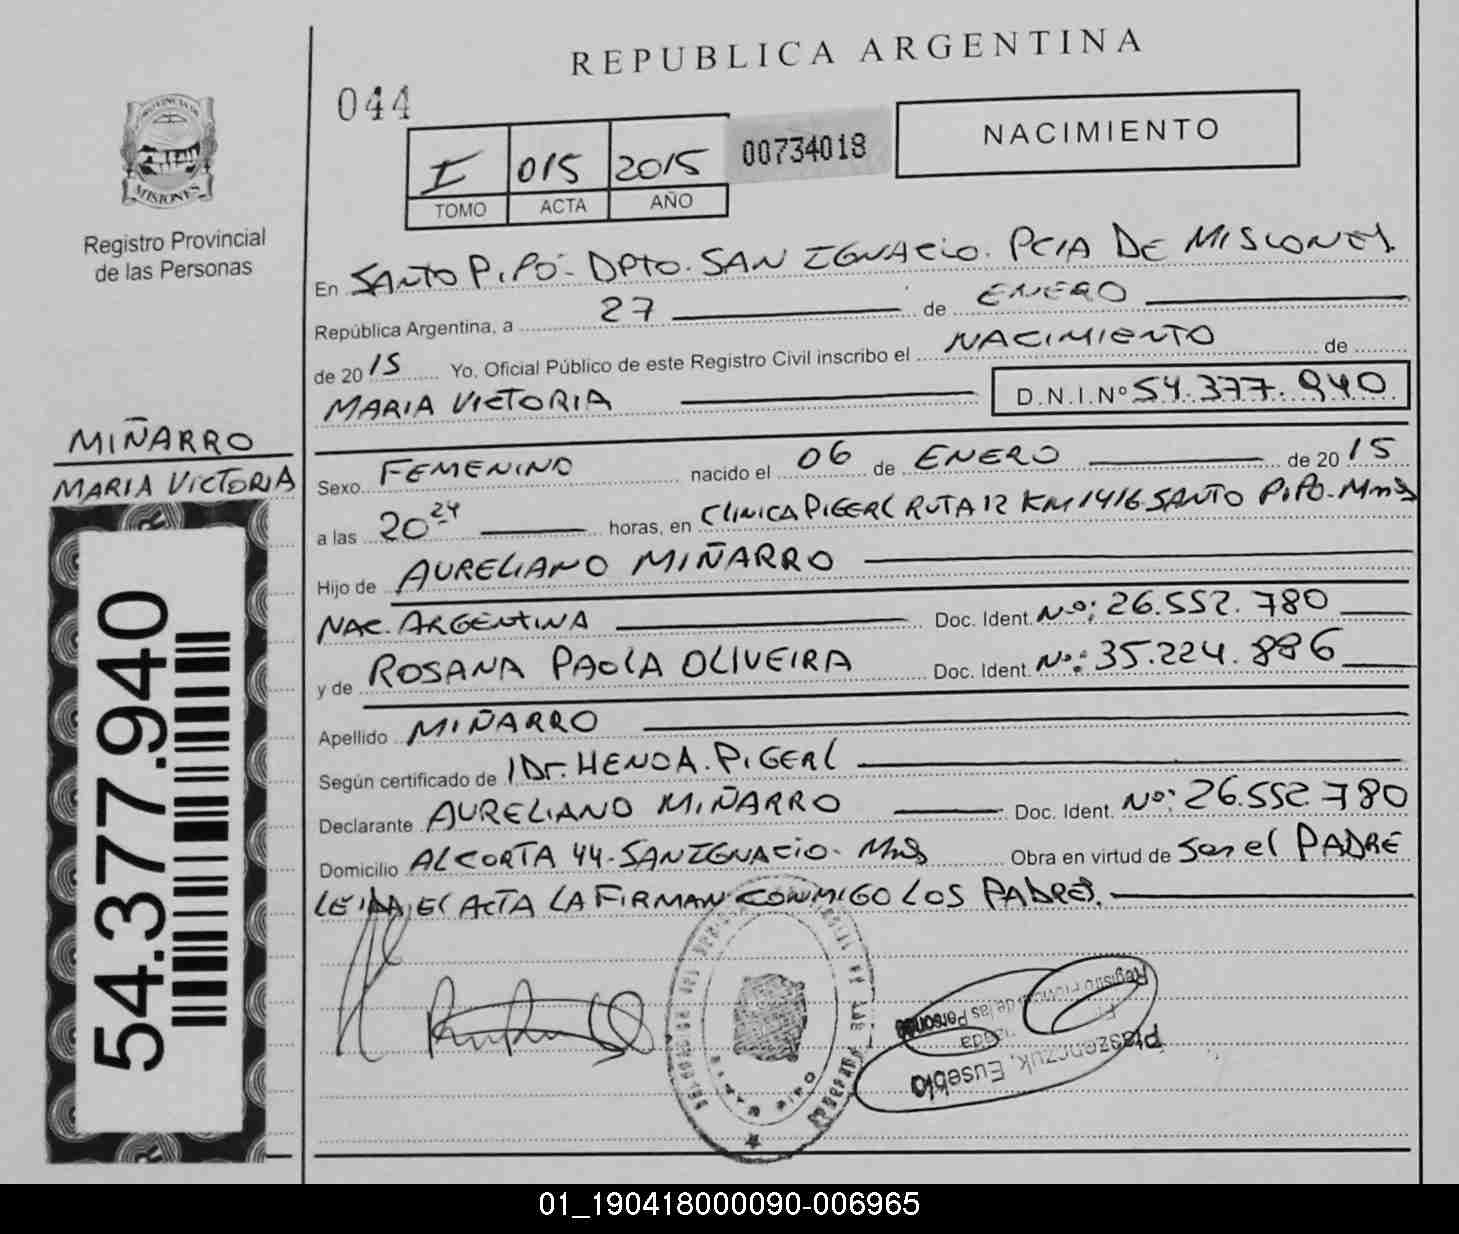 REPUBLICA ARGENTINA
044
I 015 2015 00734018 NACIMIENTO
TOMO ACTA AÑO
PROVINCIA DE
MISIONES
Registro Provincial
de las Personas
En SANTO PIPÓ- DPTO. SAN IGNACIO. PCIA DE MISIONES.
República Argentina, a 27 de ENERO
de 2015 Yo, Oficial Público de este Registro Civil inscribo el NACIMIENTO de
MARIA VICTORIA D.N.I.Nº 54.377.940
MIÑARRO
MARIA VICTORIA
Sexo FEMENINO nacido el 06 de ENERO de 2015
a las 20 24 horas, en CLINICA PIGERL RUTA 12 KM 1416 SANTO PIPO-Mns
Hijo de AURELIANO MIÑARRO
NAC. ARGENTINA Doc. Ident. Nº: 26.552.780
y de ROSANA PAOLA OLIVEIRA Doc. Ident. Nº: 35.224.886
Apellido MIÑARRO
Según certificado de Dr. A. PIGERL
Declarante AURELIANO MIÑARRO Doc. Ident. Nº: 26.552.780
Domicilio ALCORTA 44-SAN IGNACIO- Mns Obra en virtud de Ser el PADRE
LEIDA EL ACTA LA FIRMAN CONMIGO LOS PADRES.
54.377.940
Registro Provincial de las Personas
Ptaszenczuk, Eusebio
01_190418000090-006965